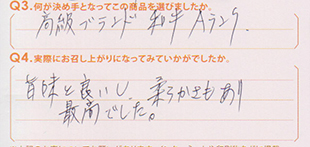 Q3.何が決め手となってこの商品を選びましたか。
高級ブランド 和牛 Aランク
Q4.実際にお召し上がりになってみていかがでしたか。
旨味と良いし、柔らかさもあり
最高でした。